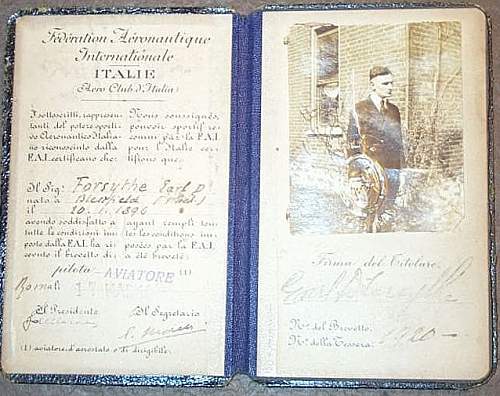 Fédération Aéronautique
Internationale
ITALIE
(Aéro Club d'Italia)
I sottoscritti, rappresen-
tanti del potere sporti-
vo Aeronautico Italia-
no riconosciuto dalla
F.A.I. certificano che:
Nous soussignés,
pouvoir sportif re-
connu par la F.A.I.
pour l'Italie cer-
tifions que:
Il Sig: Forsythe Earl D
nato a
il 10. 1. 1896
avendo soddisfatto a
tutte le condizioni im-
poste dalla F.A.I. ha ri-
cevuto il brevetto di
ayant rempli tou-
tes les conditions im-
posées par la F.A.I.
a été breveté:
pilota AVIATORE (1)
Roma li
Il Presidente
Il Segretario
(1) aviatore d'aerostato o di dirigibile.
Firma del Titolare.
N.º del Brevetto.
N.º della Tessera.